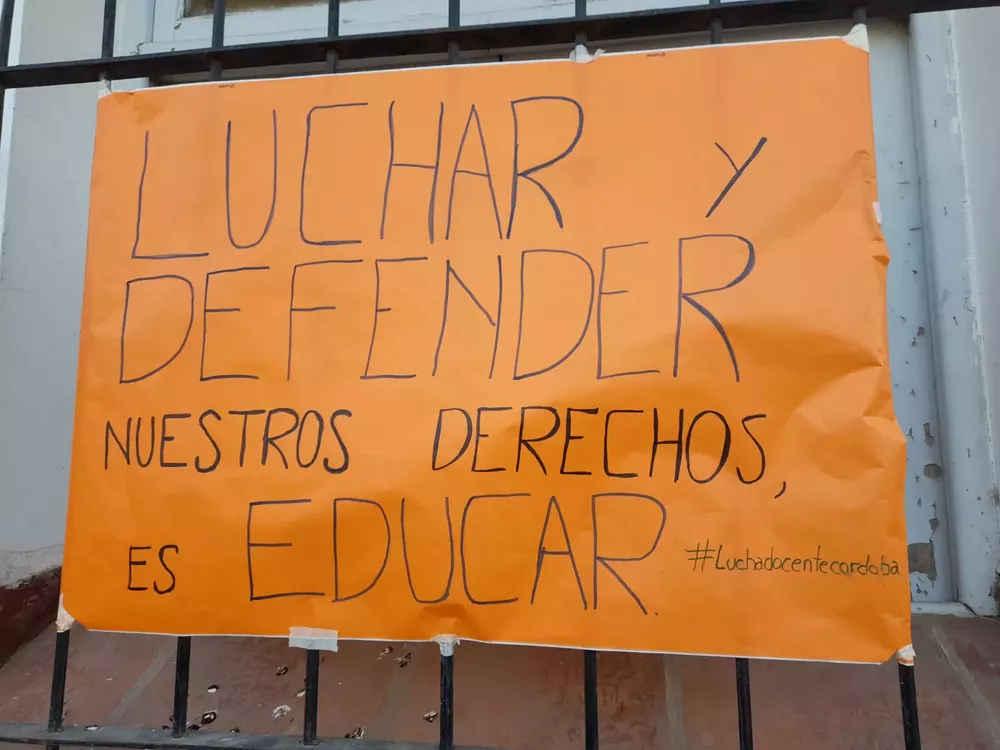 LUCHAR Y
DEFENDER
NUESTROS DERECHOS,
ES EDUCAR.
#Luchadocentecordoba